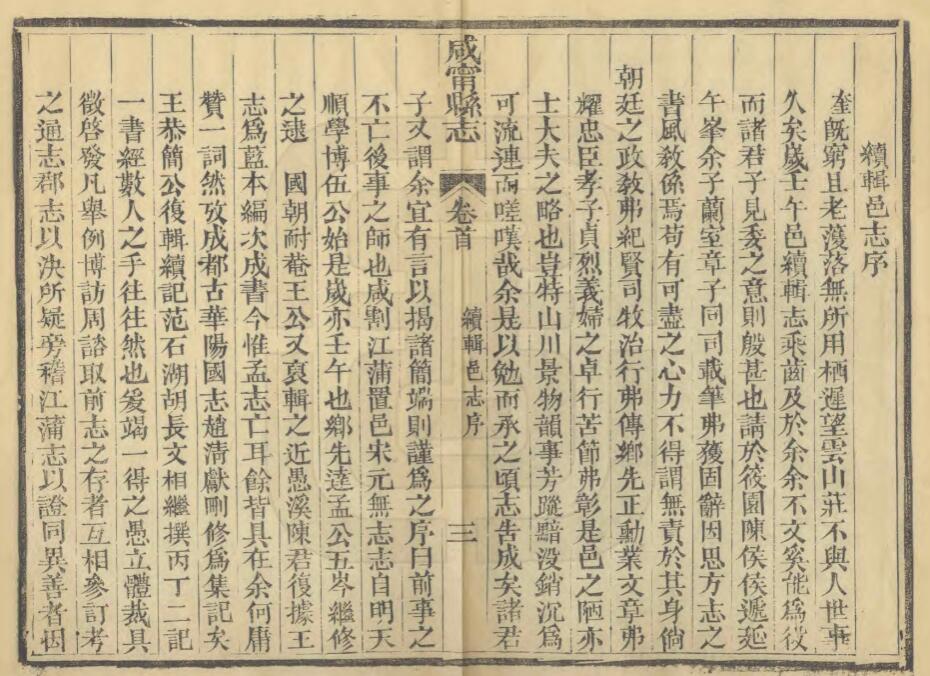 續輯邑志序
奎旣窮且老濩落無所用栖遲望雲山莊不與人世事
久矣歲壬午邑續輯志乘齒及於余余不文奚能爲役
而諸君子見委之意則殷甚也請於筱園陳侯侯遞延
午峯余子蘭室章子同司載筆弗獲固辭因思方志之
書風敎係焉苟有可盡之心力不得謂無責於其身倘
朝廷之政敎弗紀賢司牧治行弗傳鄕先正勳業文章弗
耀忠臣孝子貞烈義婦之卓行苦節弗彰是邑之陋亦
士大夫之略也豈特山川景物韻事芳蹤黯没銷沉爲
可流連而嗟嘆哉余是以勉而承之頃志告成矣諸君
咸甯縣志
卷首
續輯邑志序
三
子又謂余宜有言以揭諸簡端則謹爲之序曰前事之
不亡後事之師也咸割江蒲置邑宋元無志志自明天
順學博伍公始是歲亦壬午也鄕先達孟公五岑繼修
之逮 國朝耐菴王公又裒輯之近愚溪陳君復據王
志爲藍本編次成書今惟孟志亡耳餘皆具在余何庸
贊一詞然攷成都古華陽國志趙淸獻刪修爲集記矣
王恭簡公復輯續記范石湖胡長文相繼撰丙丁二記
一書經數人之手往往然也爰竭一得之愚立體裁具
徵啓發凡舉例博訪周諮取前志之存者互相參訂考
之通志郡志以決所疑旁稽江蒲志以證同異善者因